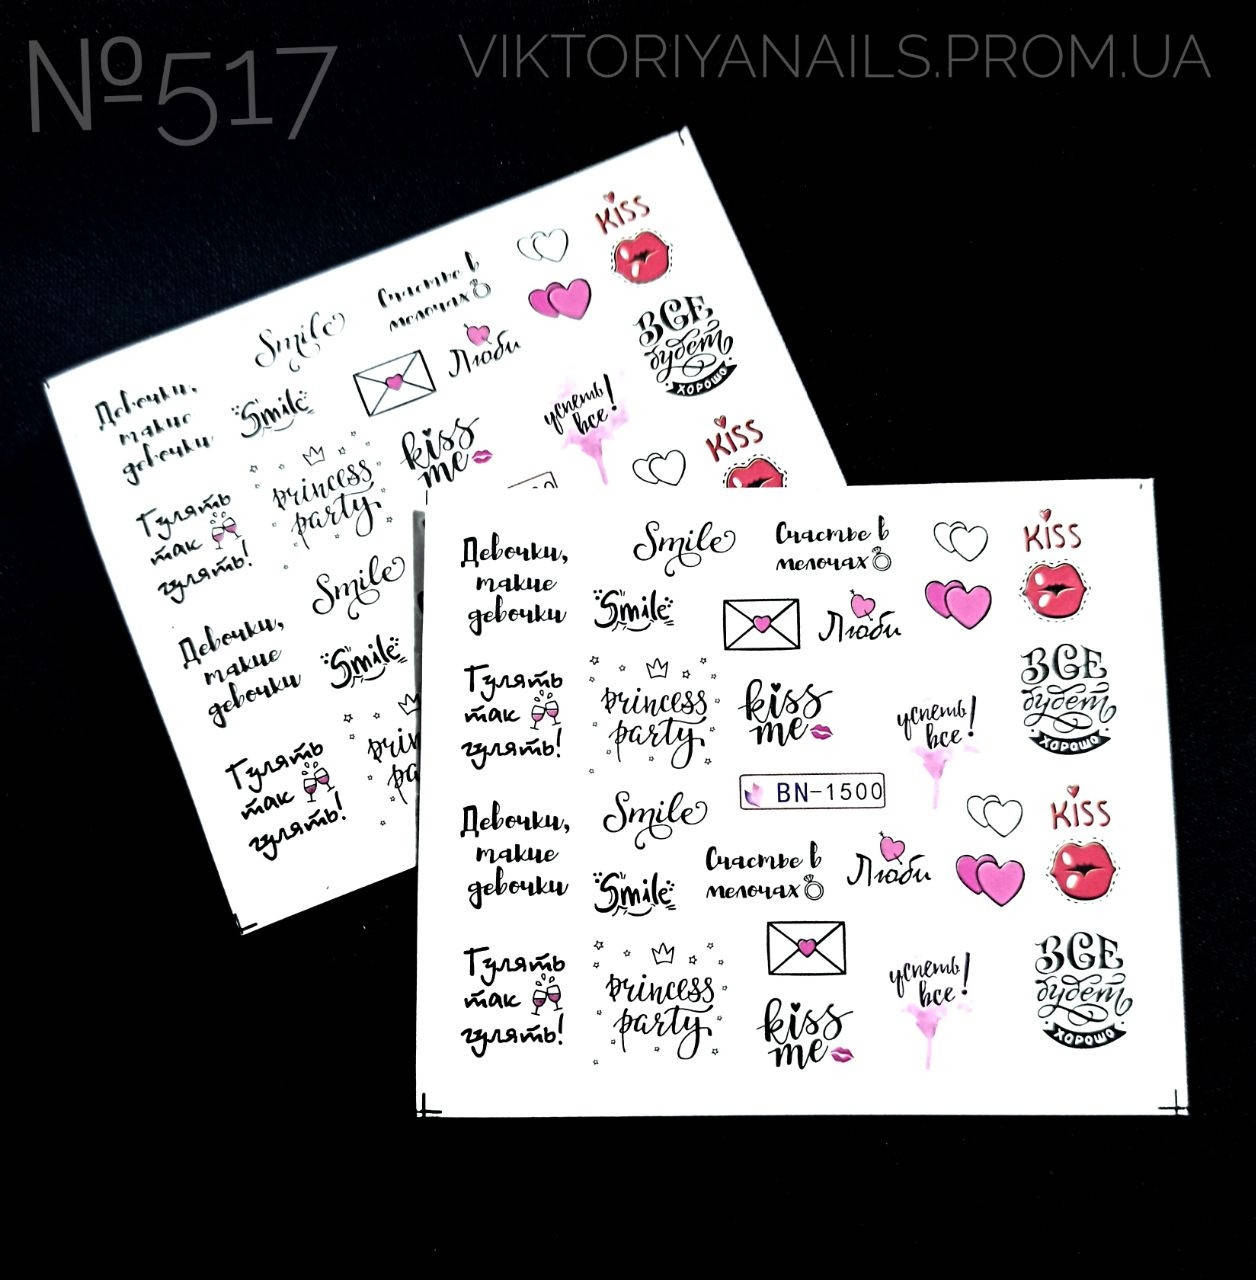 №517
VIKTORIYANAILS.PROM.UA
KISS
Счастье в
мелочах
Smile
Люби
ВСЕ
будет
ХОРОШО
Девочки,
такие
девочки
Smile
успеть
все!
kiss
me
princess
party
KISS
Гулять
так
гулять!
Smile
Девочки,
такие
девочки
Smile
Гулять
так
гулять!
Девочки,
такие
девочки
Smile
Счастье в
мелочах
KISS
Smile
Люби
Гулять
так
гулять!
princess
party
kiss
me
успеть
все!
ВСЕ
будет
ХОРОШО
BN-1500
Девочки,
такие
девочки
Smile
Счастье в
мелочах
Люби
KISS
Smile
Гулять
так
гулять!
princess
party
kiss
me
успеть
все!
ВСЕ
будет
ХОРОШО